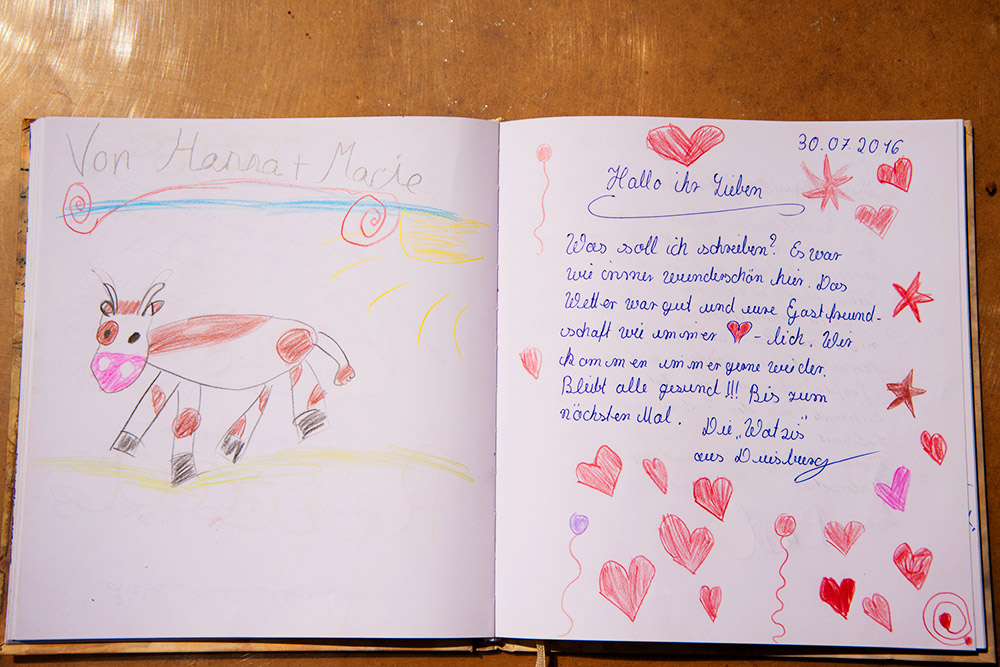 Von Hanna + Marie
30.07.2016
Hallo ihr Lieben
Was soll ich schreiben? Es war
wie immer wunderschön hier. Das
Wetter war gut und eure Gastfreund-
schaft wie immer ❤-lich. Wir
kommen immer gerne wieder.
Bleibt alle gesund!!! Bis zum
nächsten Mal. Die „Watzis"
aus Duisburg